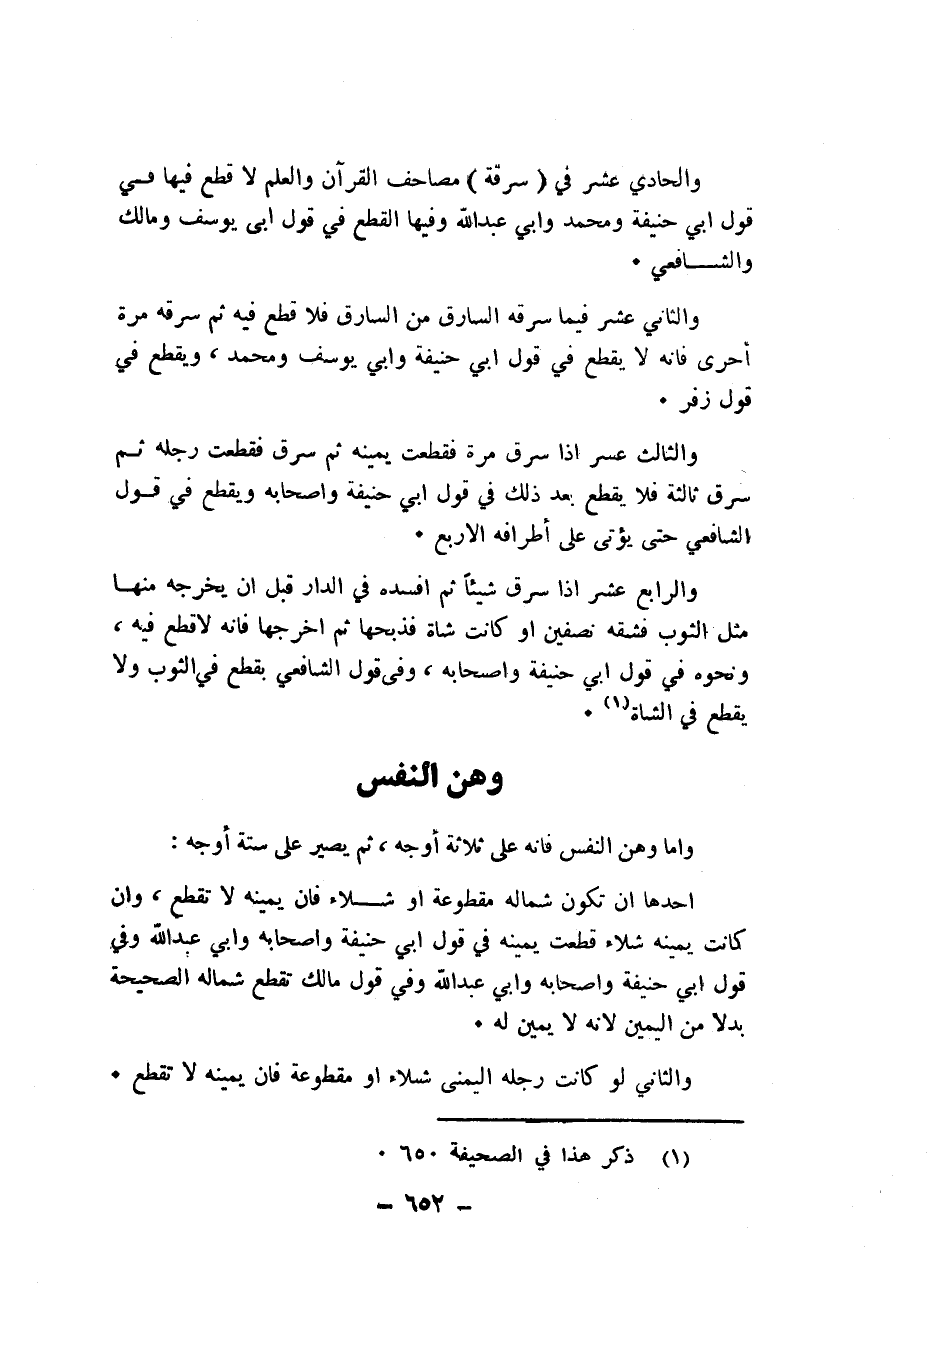 والحادي عشر في ( سرقة ) مصاحف القرآن والعلم لا قطع فيها فـي
قول ابي حنيفة ومحمد وابي عبدالله وفيها القطع في قول ابى يوسف ومالك
والشـــافعي .
والثاني عشر فيما سرقه السارق من السارق فلا قطع فيه ثم سرقه مرة
أحرى فانه لا يقطع في قول ابي حنيفة وابي يوسف ومحمد ، ويقطع في
قول زفر .
والثالث عسر اذا سرق مرة فقطعت يمينه ثم سرق فقطعت رجله ثـم
سرق ثالثة فلا يقطع بعد ذلك في قول ابي حنيفة واصحابه ويقطع في قـول
الشافعي حتى يؤتى على أطرافه الاربع .
والرابع عشر اذا سرق شيئاً ثم افسده في الدار قبل ان يخرجه منهـا
مثل الثوب فشقه نصفين او كانت شاة فذبحها ثم اخرجها فانه لاقطع فيه ،
ونحوه في قول ابي حنيفة واصحابه ، وفى قول الشافعي يقطع في الثوب ولا
يقطع في الشاة(١) .
وهن النفس
واما وهن النفس فانه على ثلاثة أوجه ، ثم يصير على ستة أوجه :
احدها ان تكون شماله مقطوعة او شـــلاء فان يمينه لا تقطع ، وان
كانت يمينه شلاء قطعت يمينه في قول ابي حنيفة واصحابه وابي عبدالله وفي
قول ابي حنيفة واصحابه وابي عبدالله وفي قول مالك تقطع شماله الصحيحة
بدلا من اليمين لانه لا يمين له .
والثاني لو كانت رجله اليمنى شلاء او مقطوعة فان يمينه لا تقطع .
(١) ذكر هذا في الصحيفة ٦٥٠ .
– ٦٥٢ –